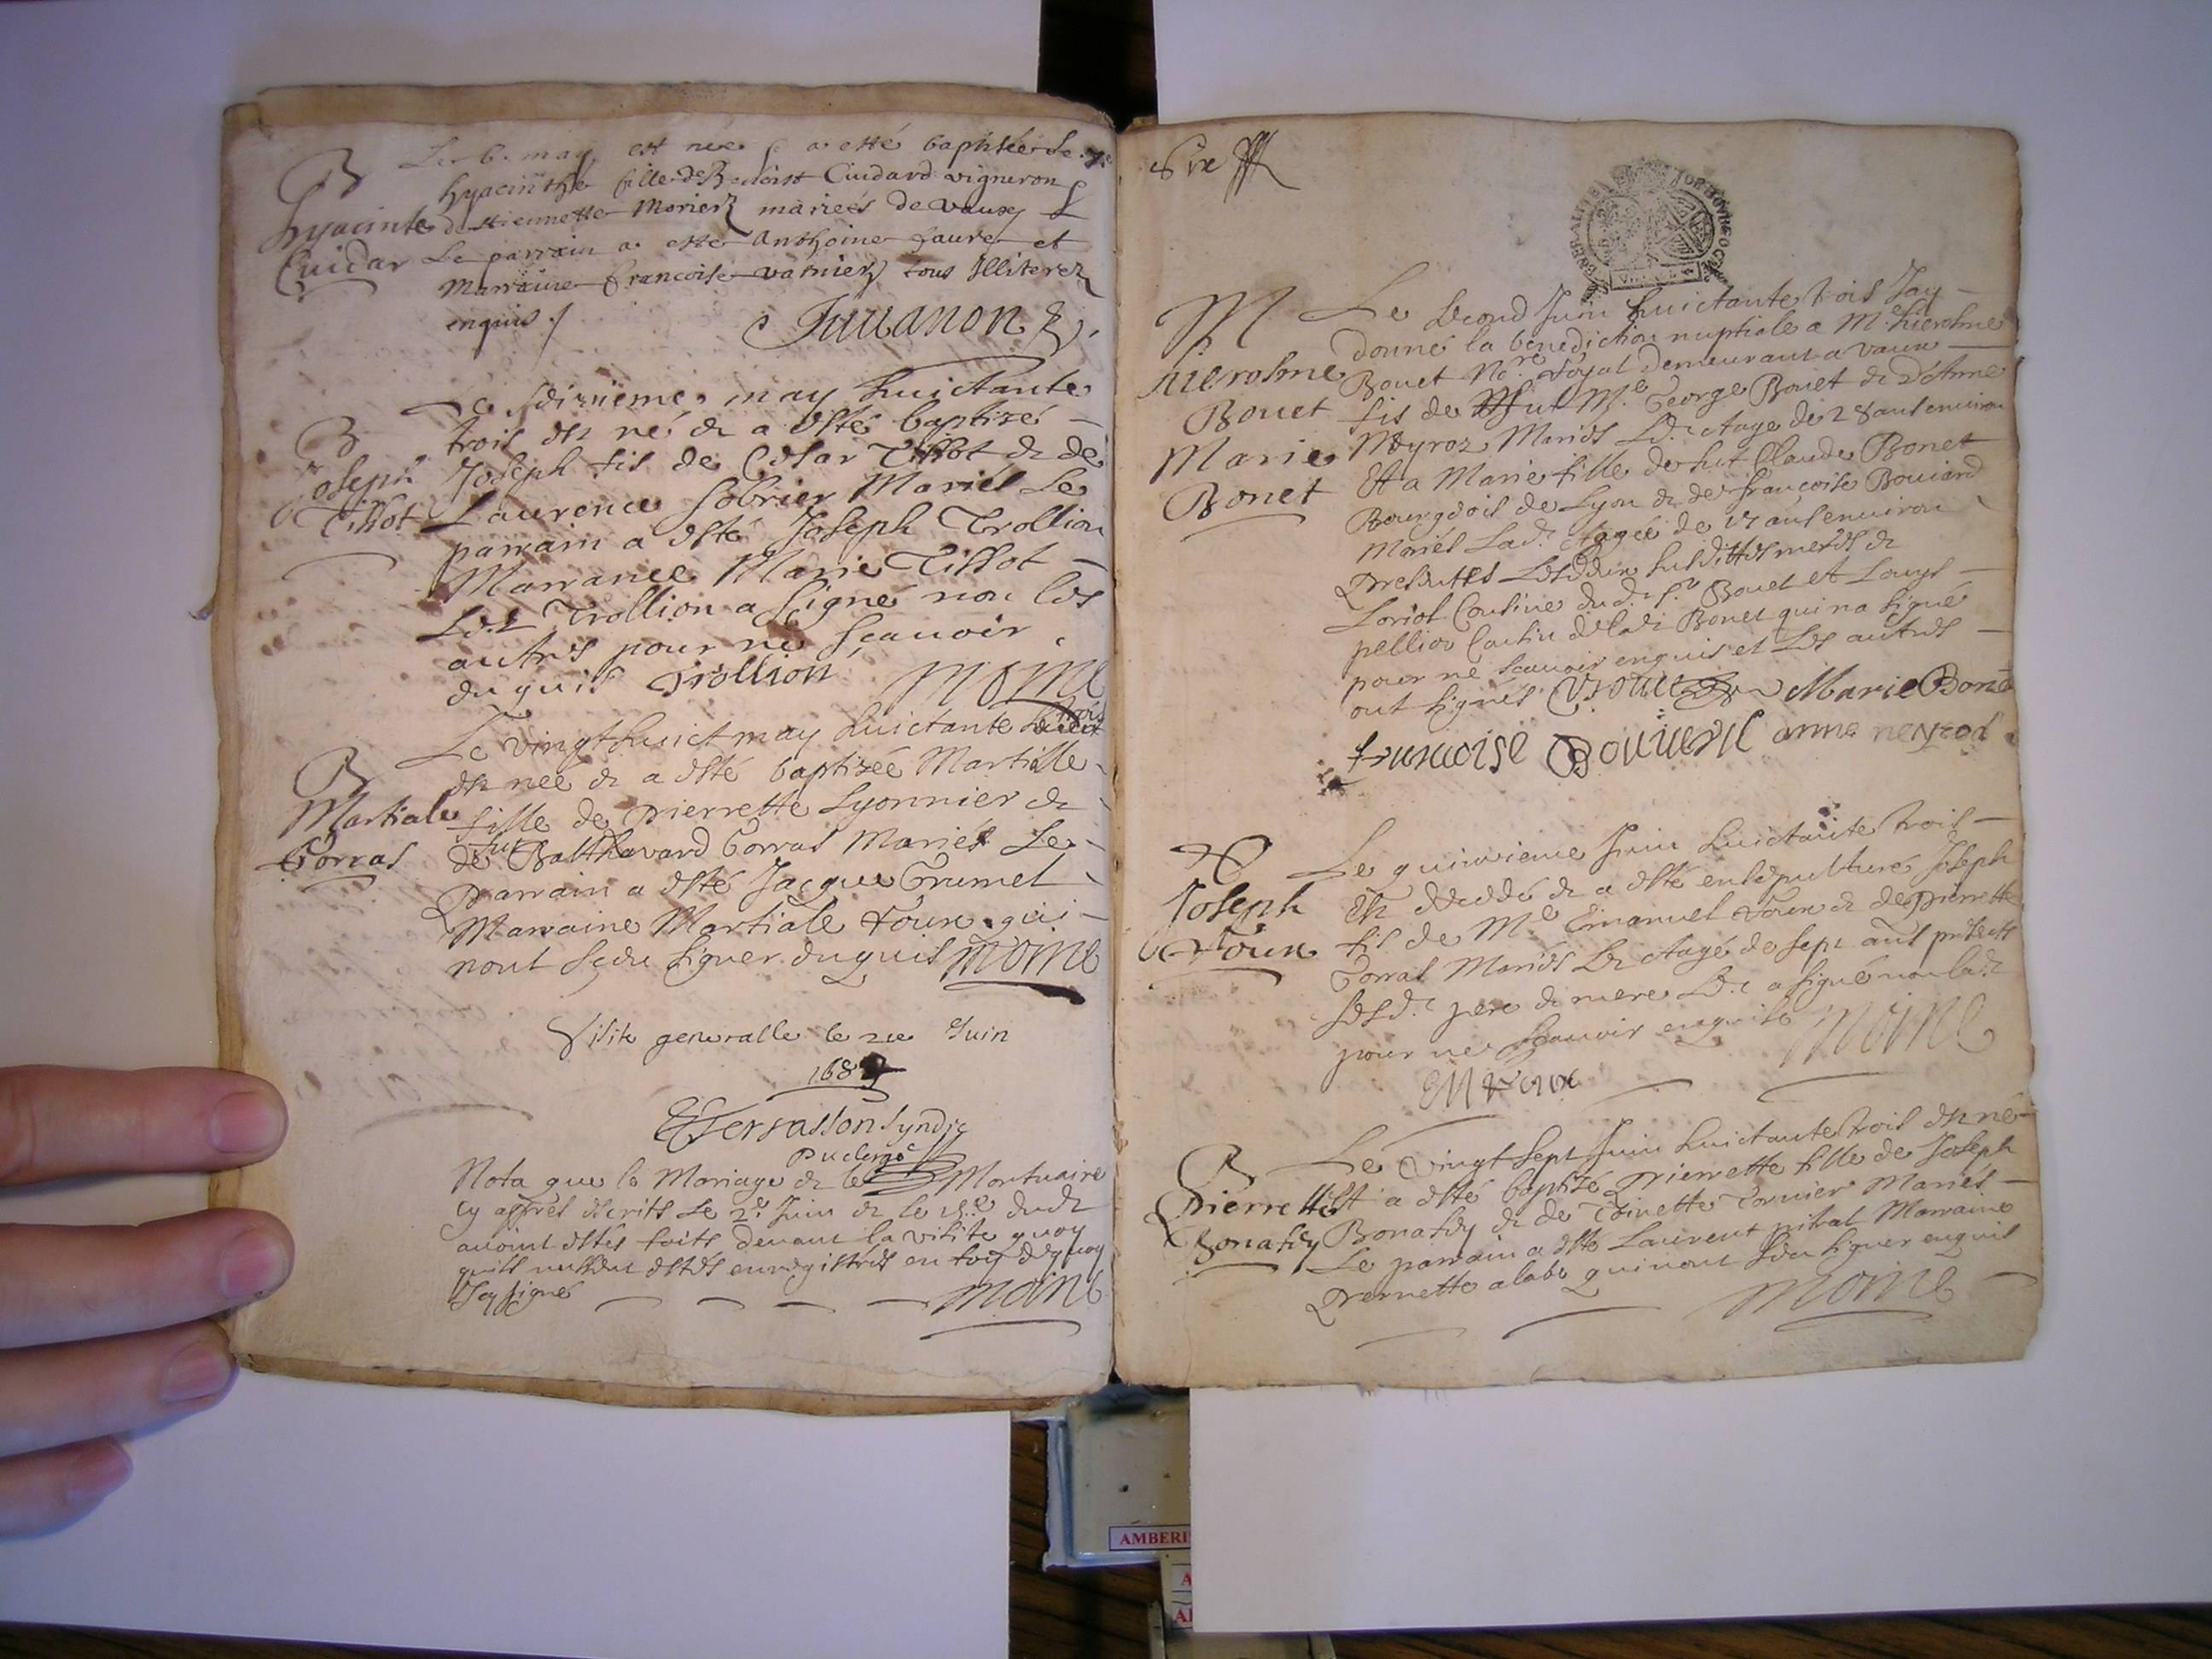 B
Le 6. may est née & a esté baptisée le 7e
hyacinthe fille de Benoist Cuidard vigneron
hyacinte
Cuidar
d'estiennette Morier mariés de vaux &
Le parrain a esté anthoine faure et
Marraine francoise varnier tous Illiterez
enquis
Juuanon
B
Joseph
Tissot
Le dixiême may huictante
trois est né & a esté baptizé
Joseph fils de Cesar Tissot & de
Laurence Sobrier Mariés Le
parrain a esté Joseph Trollion
Marranee Marie Tissot
Led. Trollion a signé non les
autres pour ne sçauoir
duquis Trollion moine
B
Martiale
Gorras
Le vingthuict may huictante trois
est née & a esté baptizée Martialle
fille de pierrette Lyonnier &
de fut Balthazard Gorras Mariés Le
parrain a esté Jacque Grumel
Marraine Martiale Foux qui
nont sçeu signer duquis moine
Visite generalle le 21e Juin
168
Terrasson syndic
Du clergé
Nota que le Mariage & le Mortuaire
cy après escrits Le 2e Juin & le 15e dud
auoint estés faits deuant la visite quoy
quils nussent estés enregistrés en foy dequoy
Jay signé moine
M
hierosme
Bouet
Marie
Bonet
Le second Juin huictante trois Jay
donné la bénédiction nuptiale a Me hierosme
Bouet Nore Royal demeurant a vaux
fils de fut Me George Bouet & d'Anne
Neyroz Mariés Led. aage de 28 ans enuiron
Et a Marie fille de fut Claude Bonet
Bourgeois de Lyon & de françoise Bouiard
Mariés Lad. Agée de ans enuiron
presentes Lesdittes susdittes meres &
Loriol Cousine dud. sr Bouet et Louys
pellion Cousin de lad. Bonet qui na signé
pour ne scauoir enquis et Les autres
ont signés Bouet Marie Bonet
francoise Bouuerd anne neyroz
Joseph
Foux
Le quinzieme Juin huictante trois
Est decedé & a esté ensepulturé Joseph
fils de Me Emanuel Foux & de pierrette
Gorras Mariés Led. Aagé de sept ans presents
sesd. pere & mere Led. a signé non lad.
pour ne scauoir enquise moine
E M Foux
B
Pierrette
Bonafey
Le vingt sept Juin huictante trois est né
Et a esté baptizé pierrette fille de Joseph
Bonafey & de Toinette Cornier Mariés
Le parrain a esté Laurent pitrat Marraine
pernette alabe qui nont sçeu signer enquis
moine